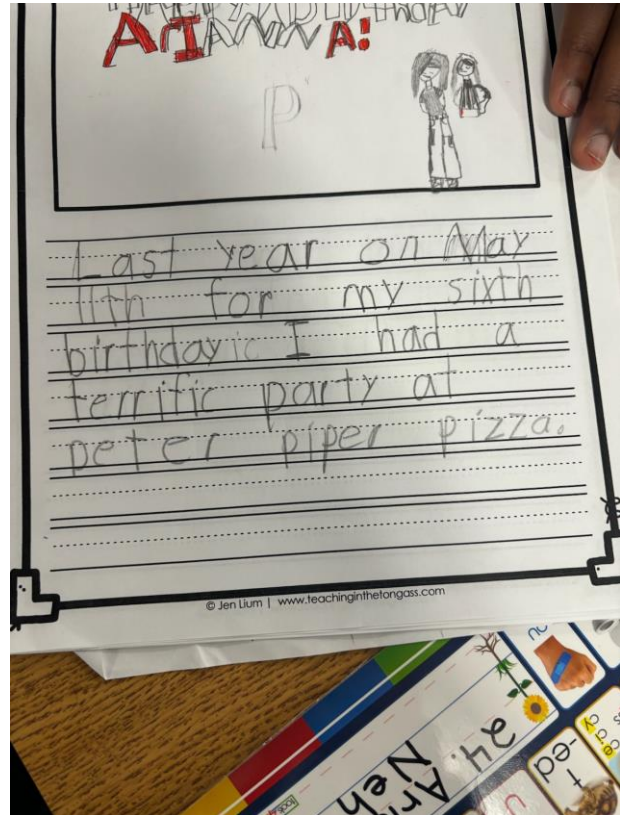 ArIANNA!
P
Last year on May
11th for my sixth
birthday I had a
terrific party at
peter piper pizza.
© Jen Lium | www.teachinginthetongass.com
24.
Ari
Neh
-ed